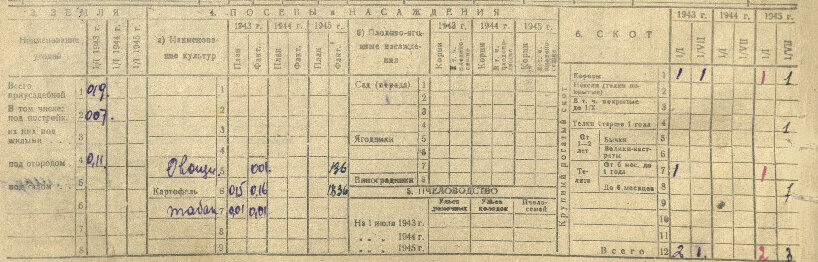 З Е М Л Я
4. П О С Е В Ы и Н А С А Ж Д Е Н И Я
Наименование угодий
1/I 1943 г.
1/I 1944 г.
1/I 1945 г.
а) Наименова-
ние культур
1943 г. 1944 г. 1945 г.
План Факт. План Факт. План Факт.
б) Плодово-яго-
дные насажде-
ния
1943 г. 1944 г. 1945 г.
Корни Корни Корни
6. С К О Т
1943 г. 1944 г. 1945 г.
1/I 1/VII 1/I 1/VII 1/I 1/VII
Всего
приусадебной 1 0,19
В том числе:
под постройк. 2 0,07
из них под
жилыми 3
под огородом 4 0,11
5
6
7
8
1
2
3
4
Овощи 5 0,01 136
Картофель 6 0,15 0,16 1836
табак 7 0,01 0,01
8
9
Сад (дерева) 1
2
3
4
Ягодники 5
6
Виноградники 7
8
5. ПЧЕЛОВОДСТВО
Ульев рамочных
Ульев колодок
Пчело-
семей
На 1 июля 1943 г.
" " " 1944 г.
" " " 1945 г.
Крупный рогатый скот
Коровы 1 1 1 1 1
2
В т. ч. покрытые
до 1/X 3
Телки старше 1 года 4 1
От 1—2 лет
Бычки 5
Волики-каст-
раты 6
Те-
лята
От 6 мес. до
1 года 7 1 1
До 6 месяцев 8 1
9
10
11
Всего 12 2 1. 2 3